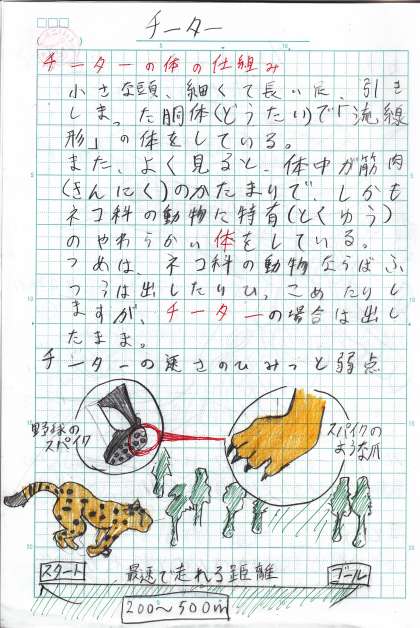 チーター
チーターの体の仕組み
小さな頭、細くて長い足、引き
しまった胴体(どうたい)で「流線
形」の体をしている。
また、よく見ると、体中が筋肉
(きんにく)のかたまりで、しかも
ネコ科の動物に特有(とくゆう)
のやわらかい体をしている。
つめは、ネコ科の動物ならばふ
つうは出したりひっこめたりし
ますが、チーターの場合は出し
たまま。
チーターの速さのひみつと弱点
野球の
スパイク
スパイクの
ような爪
スタート
最速で走れる距離
ゴール
200〜500m